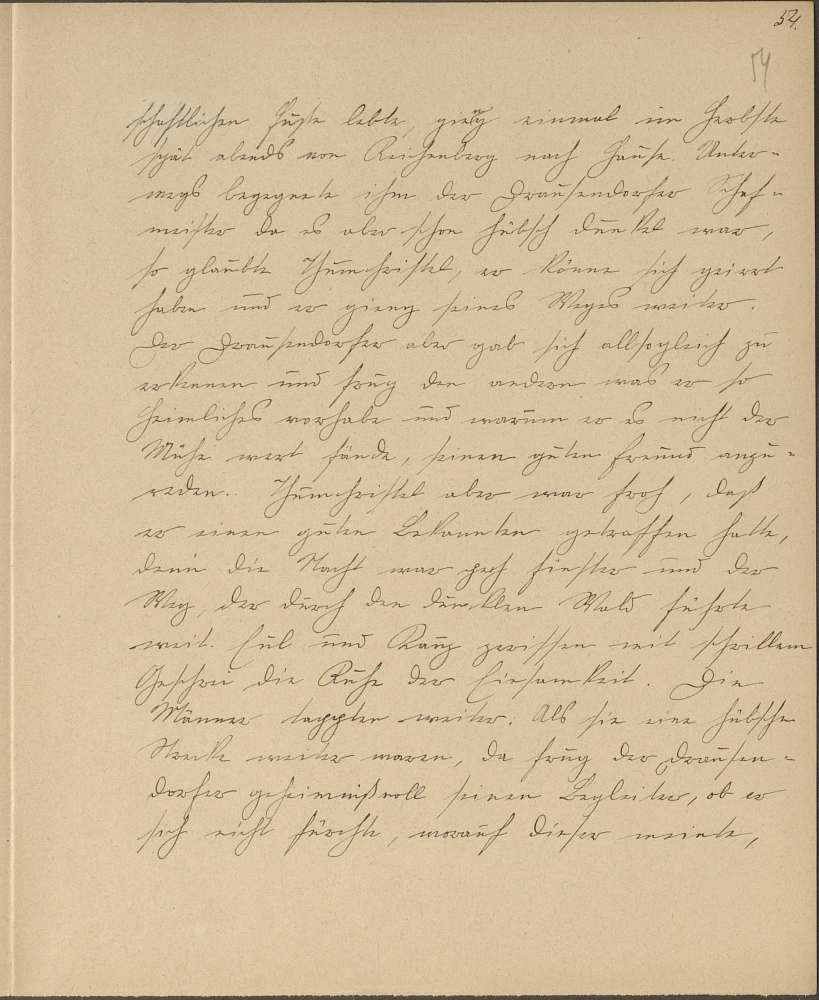 54.
54
schaftlichen Fuße lebte, gieng einmal im Herbste
spät abends von Reichenberg nach Hause. Unter-
wegs begegnete ihm der Drausendorfer Schaf-
meister da es aber schon hübsch dunkel war,
so glaubte Thumchristel, er könne sich geirrt
haben und er gieng seines Weges weiter.
Der Drausendorfer aber gab sich allsogleich zu
erkennen und frug den andern was er so
Heimliches vorhabe und warum er es nicht der
Mühe wert fände, seinen guten Freund anzu-
reden. Thumchristel aber war froh, daß
er einen guten Bekannten getroffen hatte,
denn die Nacht war finster und der
Weg, der durch den dunklen Wald führte
weit. Eul und Kauz zerrissen mit schrillem
Geschrei die Ruhe der Einsamkeit. Die
Männer tappten weiter. Als sie eine hübsche
Strecke weiter waren, da frug der Drausen-
dorfer geheimnißvoll seinen Begleiter, ob er
sich nicht fürchte, worauf dieser meinte,